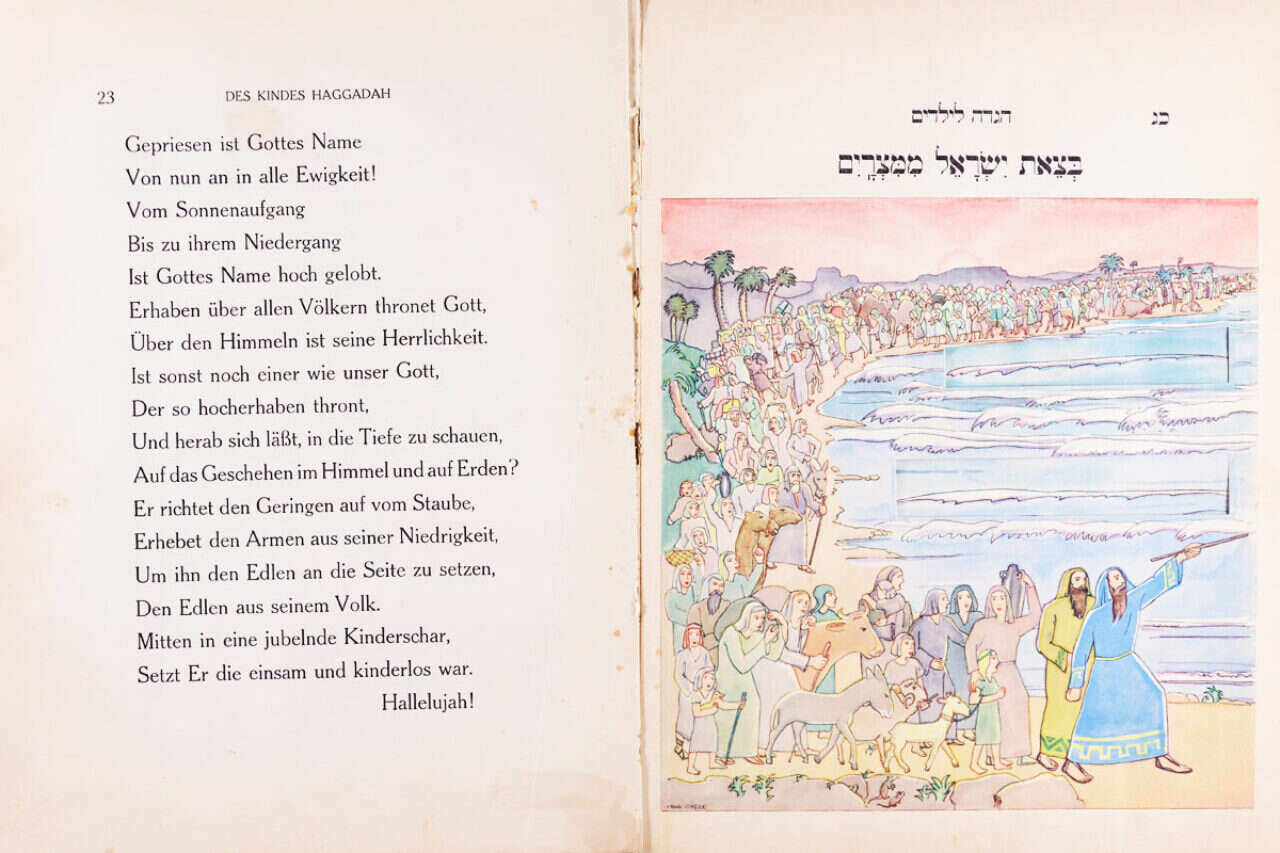 23 DES KINDES HAGGADAH
Gepriesen ist Gottes Name
Von nun an in alle Ewigkeit!
Vom Sonnenaufgang
Bis zu ihrem Niedergang
Ist Gottes Name hoch gelobt.
Erhaben über allen Völkern thronet Gott,
Über den Himmeln ist seine Herrlichkeit.
Ist sonst noch einer wie unser Gott,
Der so hocherhaben thront,
Und herab sich läßt, in die Tiefe zu schauen,
Auf das Geschehen im Himmel und auf Erden?
Er richtet den Geringen auf vom Staube,
Erhebet den Armen aus seiner Niedrigkeit,
Um ihn den Edlen an die Seite zu setzen,
Den Edlen aus seinem Volk.
Mitten in eine jubelnde Kinderschar,
Setzt Er die einsam und kinderlos war.
Hallelujah!
כג הגדה לילדים
בְּצֵאת יִשְׂרָאֵל מִמִּצְרָיִם